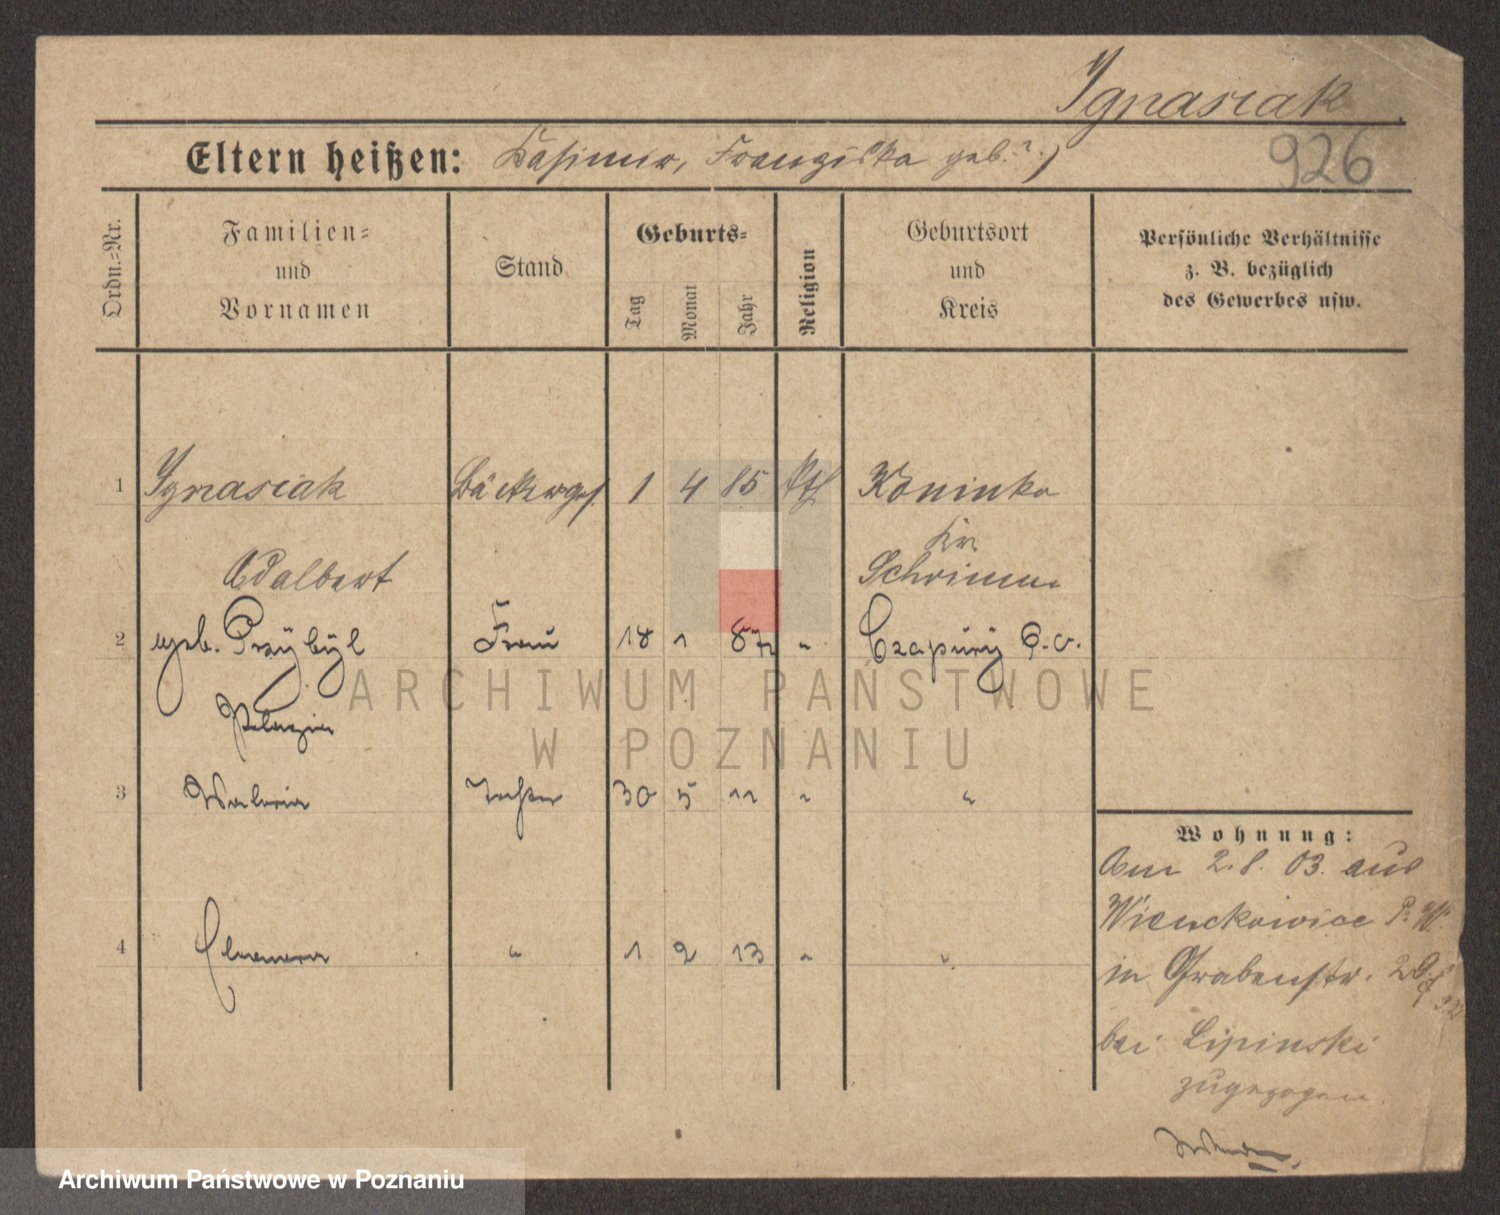 Ignasiak
926
Eltern heißen: Kasimir, Franziska geb. ?
Ordn.-Nr.
Familien-
und
Vornamen
Stand
Geburts-
Tag
Monat
Jahr
Religion
Geburtsort
und
Kreis
Persönliche Verhältnisse
z. B. bezüglich
des Gewerbes usw.
1 Ignasiak Bäckerges. 1 4 85 kth Koninko
Kr.
Adalbert Schrimm
2 geb. Przÿbÿl Frau 18 1 87 " Czapurÿ P.O.
Pelagia
3 Waleria Tochter 30 5 11 " "
4 1 2 13 " "
Wohnung:
Am 2.8.03. aus
Wienckowice P. W.
in Grabenstr. 29
bei Lipinski
zugezogen.
ARCHIWUM PAŃSTWOWE
W POZNANIU
Archiwum Państwowe w Poznaniu